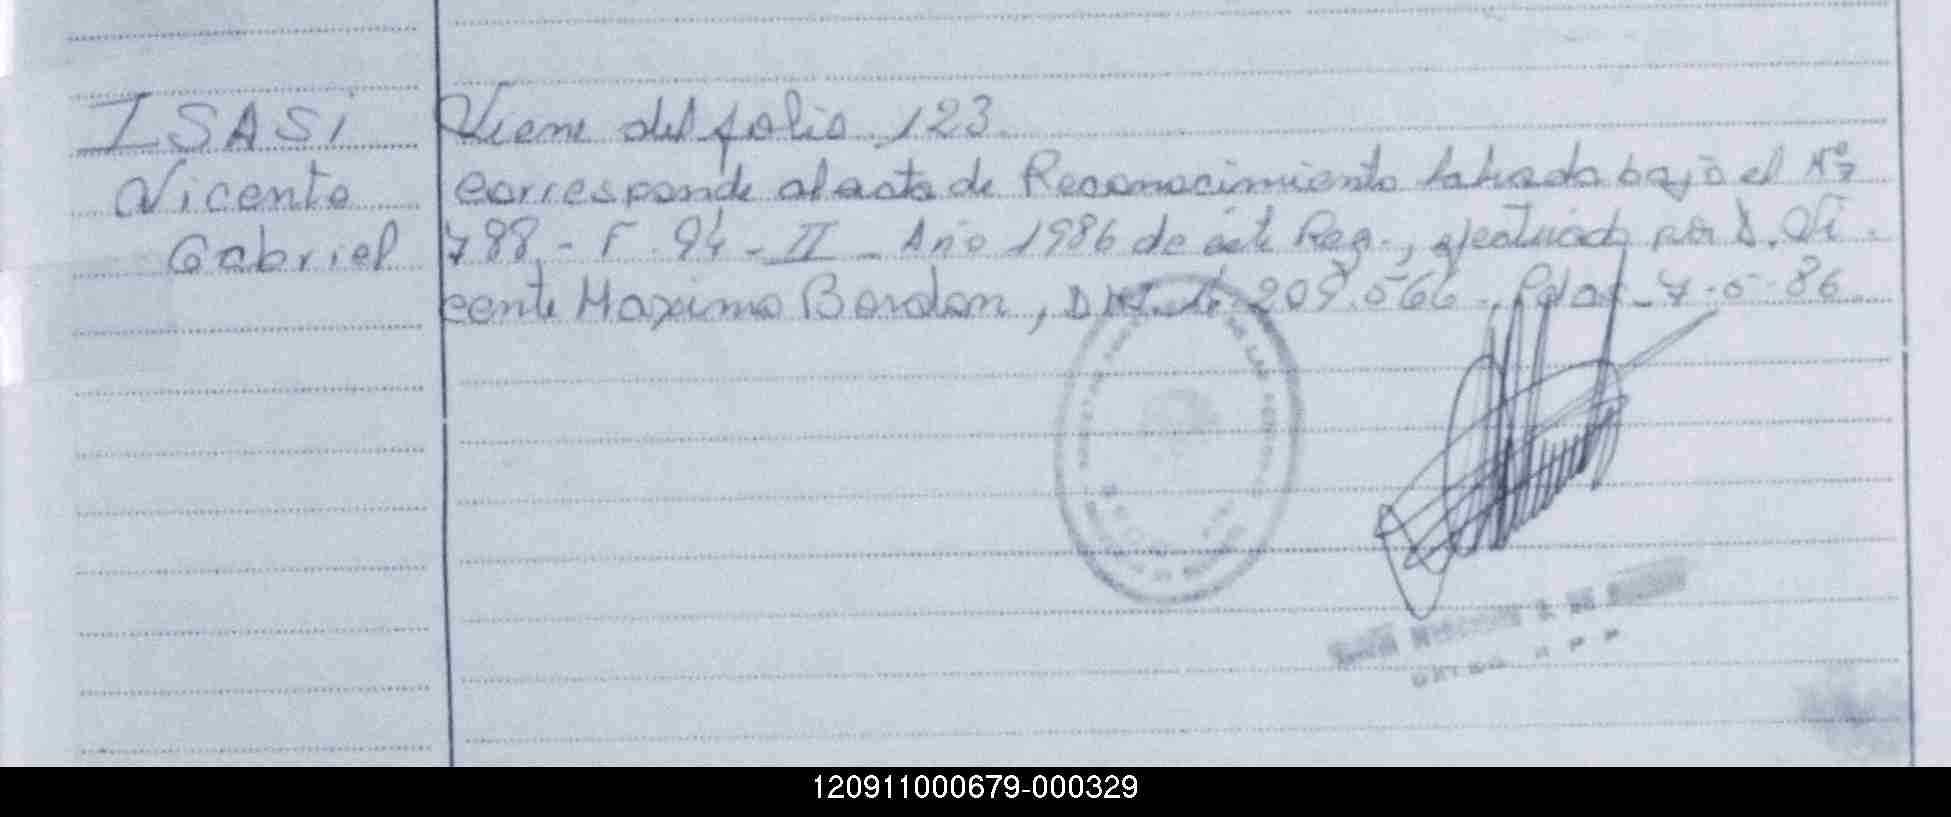 ISASi
Vicente
Gabriel
Viene del folio 123.
corresponde al acta de Reconocimiento labrada bajo el Nº
788 - F. 94 - II - Año 1986 de éste Reg., efectuado por D. Vi
cente Maximo Bordon, D.N.I. 209.566 - 7-5-86
120911000679-000329